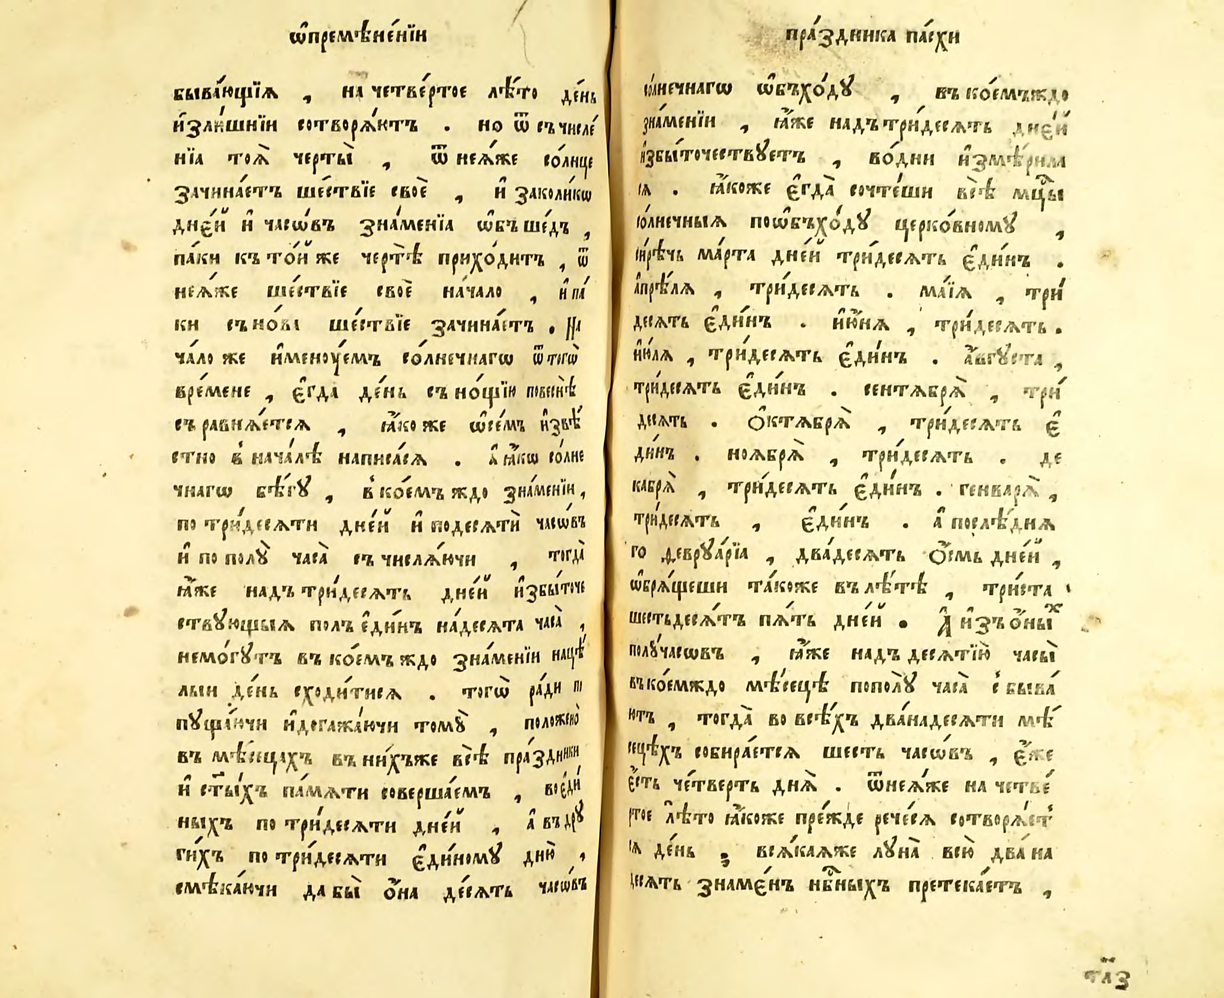 ѡ҆премѣне́нїи
быва́ющїѧ , на четве́ртое лѣ́то де́нь
и҆зли́шнїи сотворѧ́ютъ . но ѿ съчисле́
нїа тоѧ̀ черты̀ , ѿ неѧ́же со́лнце
зачина́етъ ше́ствїе своѐ , и҆ заколикѡ
дне́й и҆ часѡ́въ зна́менїа ѡ҆бъше́дъ ,
па́ки къ то́йже чертѣ̀ прихо́дитъ , ѿ
неѧ́же ше́ствїе своѐ нача́ло , и҆ па́
ки съно́ва ше́ствїе зачина́етъ . На
ча́ло же и҆мену́емъ со́лнечнагѡ ѿ тогѡ̀
вре́мене , є҆гда̀ де́нь съ но́щїю
съравнѧ́етсѧ , ꙗ҆́коже ѡ҆се́мъ и҆звѣ́
стно в нача́лѣ написа́сѧ . А҆ ꙗ҆́кѡ со́лне
чнагѡ бѣ́гꙋ , в ко́емъждо зна́менїи ,
по три́десѧти дне́й и҆ по десѧтѝ часѡ́въ
и҆ по полꙋ̀ часа̀ съчислѧ́ючи , тогда̀
ꙗ҆́же надъ три́десѧть дне́й и҆збы́точе
ствꙋющыѧ полъ є҆ди́нъ на́десѧта часа̀ ,
немо́гꙋтъ въ ко́емъждо зна́менїи на цѣ́
лыи де́нь сходи́тисѧ . тогѡ̀ ра́ди
пꙋща́ючи и҆ догажа́ючи томꙋ̀ , положено̀
въ мѣ́сѧцахъ въ ни́хъже всѣ̀ пра́здники
и҆ ст҃ы́хъ па́мѧти соверша́емъ , во є҆ди́
ныхъ по три́десѧти дне́й , а҆ въ дрꙋ
ги́хъ по три́десѧти є҆ди́ному дню̀ ,
смѣка́ючи дабы̀ ѻ҆на̀ де́сѧть часѡ́въ
пра́здника па́схи
со́лнечнагѡ ѡ҆бъхо́дꙋ , въ ко́емъждо
зна́менїи , ꙗ҆́же надъ три́десѧть дне́й
и҆збы́точествꙋетъ , во́дни и҆змѣ́рила
сѧ . ꙗ҆́коже є҆гда̀ сочте́ши всѣ̀ мцы
со́лнечныѧ по ѡ҆бъхо́дꙋ церко́вному ,
си́рѣчь ма́рта дне́й три́десѧть є҆ди́нъ .
а҆прі́лѧ , три́десѧть . ма́їѧ , три́
десѧть є҆ди́нъ . и҆ю́нѧ , три́десѧть .
и҆ю́лѧ , три́десѧть є҆ди́нъ . а҆́вгꙋста ,
три́десѧть є҆ди́нъ . сентѧбрѧ̀ , три́
десѧть . Ѻ҆ктѧбрѧ̀ , три́десѧть є҆
ди́нъ . ноѧбрѧ̀ , три́десѧть . де
кабрѧ̀ , три́десѧть є҆ди́нъ . генварѧ̀ ,
три́десѧть , є҆ди́нъ . а҆ послѣ́днѧ
го февруа́рїа , два́десѧть ѻ҆́смь дне́й ,
ѡ҆брѧ́щеши та́коже въ лѣ́тѣ , три́ста
шестьдесѧ́тъ пѧ́ть дне́й . А҆ и҆зъ ѻ҆́ныхъ
полꙋча́совъ , ꙗ҆́же надъ десѧтїю̀ часы̀
въ ко́емждо мѣ́сѧцѣ по полꙋ̀ часа̀ сбыва́
ютъ , тогда̀ во всѣ́хъ двана́десѧти мѣ́
сѧцѣхъ собира́етсѧ ше́сть часѡ́въ , є҆́же
є҆́сть че́тверть днѧ̀ . ѿ неѧ́же на четве́
ртое лѣ́то ꙗ҆́коже пре́жде рече́сѧ сотворѧ́ет
сѧ де́нь , всѧ́каѧже лꙋна̀ всю̀ двана
десѧть зна́менъ нбⷭ҇ныхъ претека́етъ ,